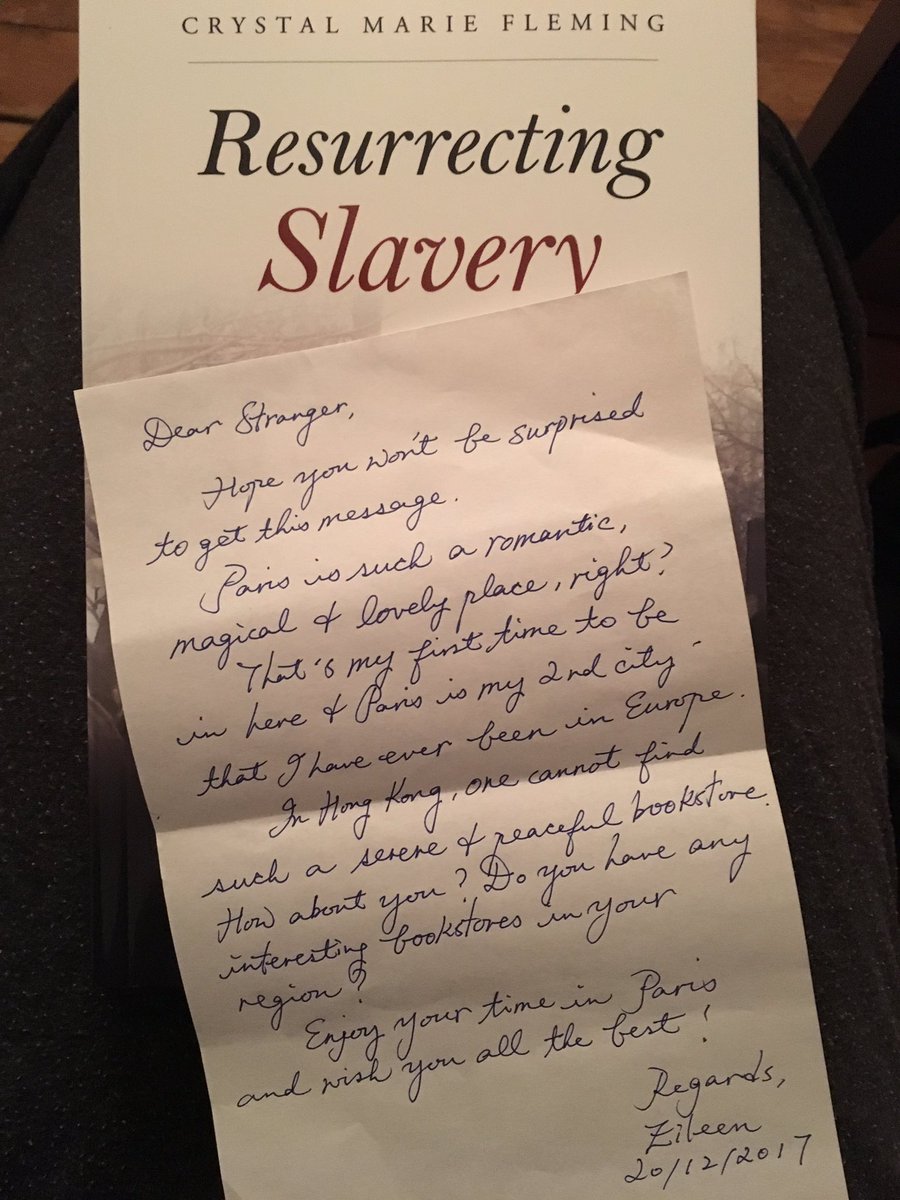 CRYSTAL MARIE FLEMING
Resurrecting
Slavery
Dear Stranger,
Hope you won't be surprised
to get this message.
Paris is such a romantic,
magical & lovely place, right?
That's my first time to be
in here & Paris is my 2nd city
that I have ever been in Europe.
In Hong Kong, one cannot find
such a serene & peaceful bookstore.
How about you? Do you have any
interesting bookstores in your
region?
Enjoy your time in Paris
and wish you all the best!
Regards,
Eileen
20/12/2017